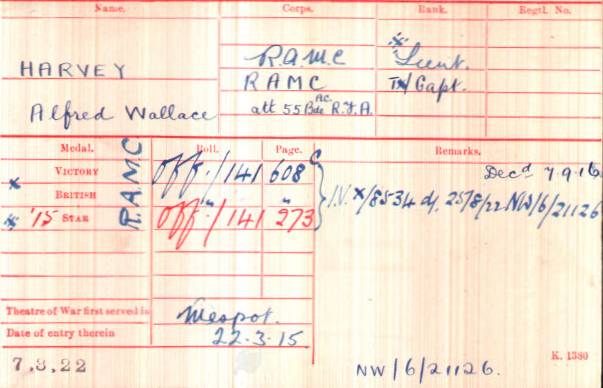 Name. Corps. Rank. Regtl. No.
HARVEY R.A.M.C Lieut.
RAMC T/Capt.
Alfred Wallace att 55 Bde AC. R.F.A.
Medal. Roll. Page. Remarks.
VICTORY R.A.M.C Off./141 608 C Decd 7.9.16
BRITISH " " I.V. x/8534 d/. 25/8/22 NW/6/21126
'15 STAR Off./141 273
Theatre of War first served in Mespot.
Date of entry therein 22.3.15
7.3.22 NW/6/21126. K. 1380